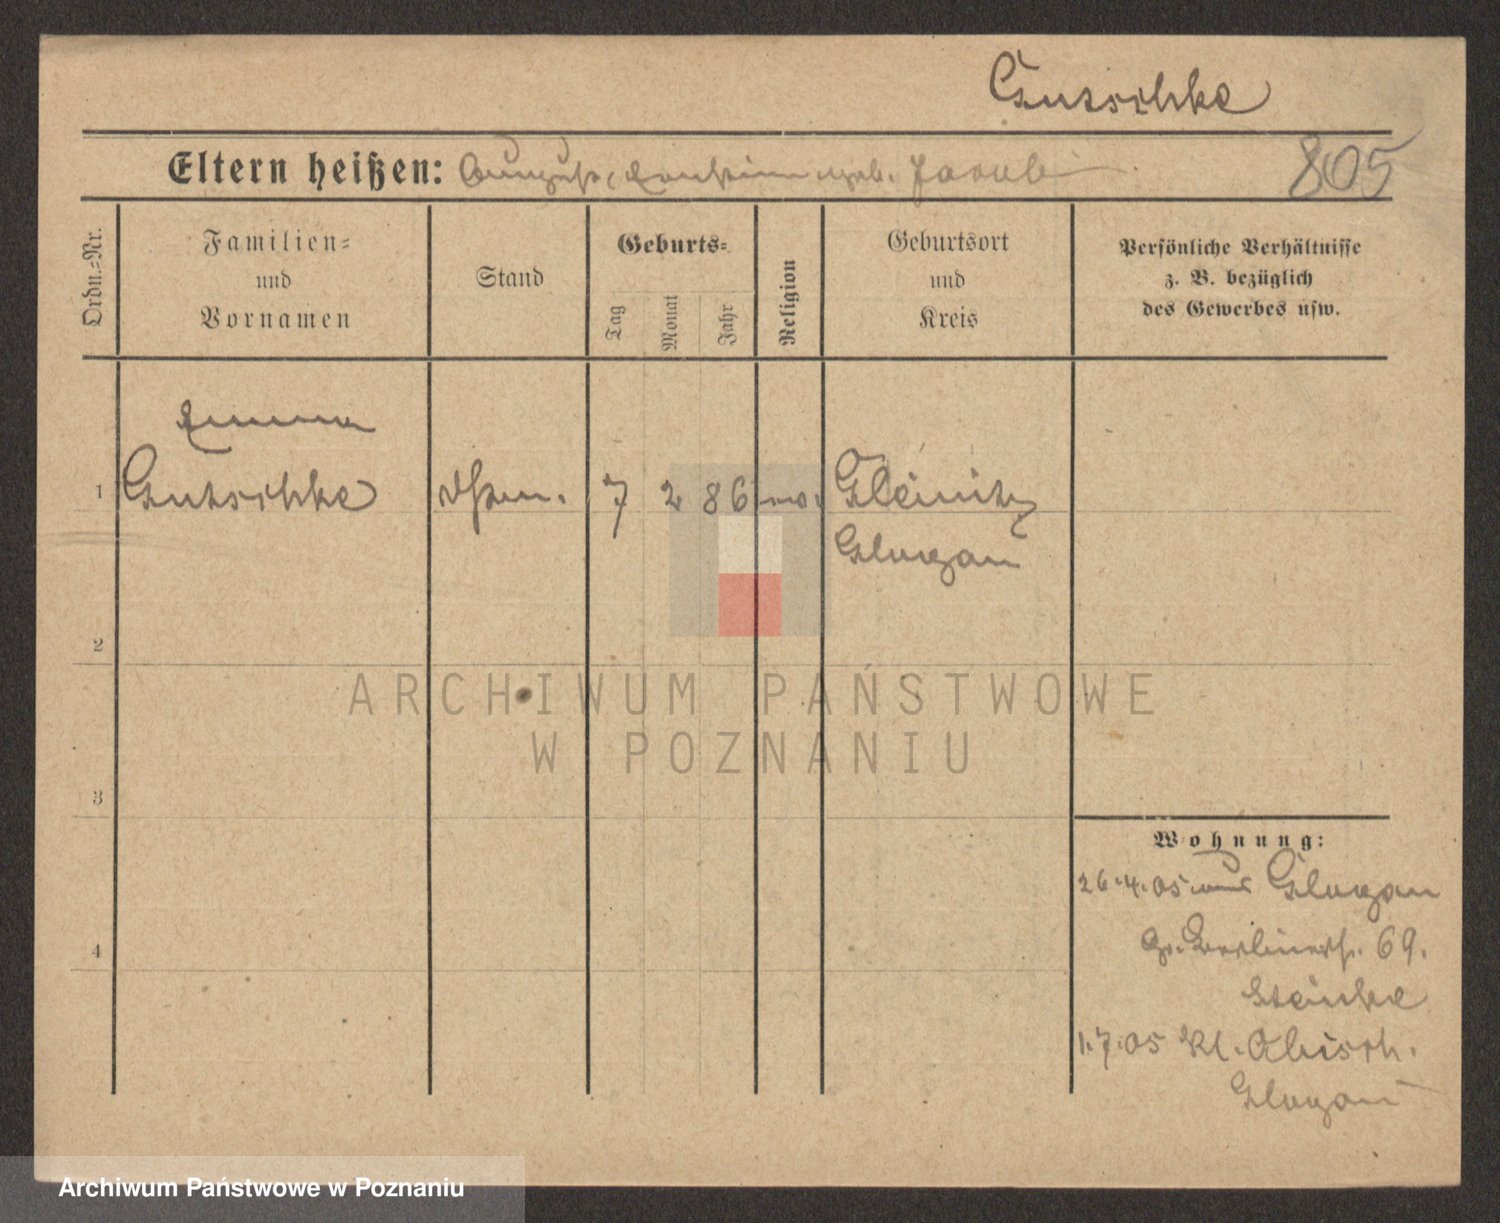 Gutschke
Eltern heißen: August, Ernstine geb. Jacob
805
Ordn.-Nr.
Familien-
und
Vornamen
Stand
Geburts-
Tag
Monat
Jahr
Religion
Geburtsort
und
Kreis
Persönliche Verhältnisse
z. B. bezüglich
des Gewerbes usw.
Emma
1 Gutschke 7 2 86 ev. Gleinitz
Glogau
2
3
4
Wohnung:
26.4.05 aus Glogau
Gr. Berlinerstr. 69.
Steinke
1.7.05 Kl.
Glogau
ARCHIWUM PAŃSTWOWE
W POZNANIU
Archiwum Państwowe w Poznaniu